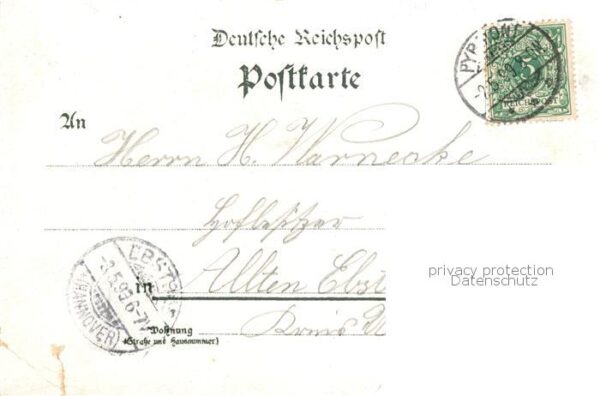 Deutsche Reichspost
Postkarte
PYRMONT
5
REICHSPOST
An
Herrn H. Warnecke
Hofbesitzer
in Allten Ebst
Kreis
Wohnung
(Straße und Hausnummer)
EBSTORF
(HANNOVER)
privacy protection
Datenschutz